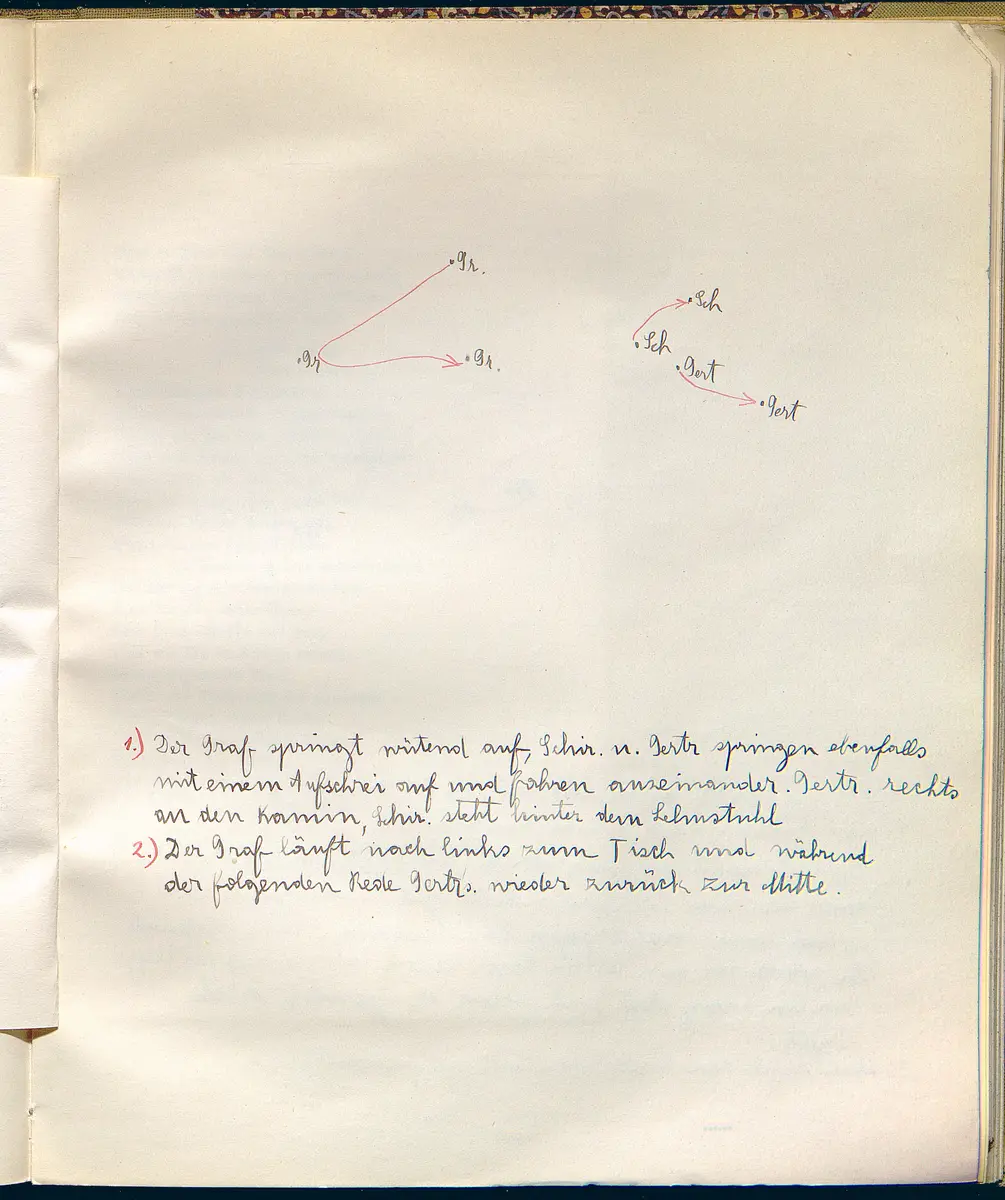 Gr.
Sch
Sch
Gr
Gr.
Gert
Gert
1.) Der Graf springt wütend auf, Schir. u. Gertr springen ebenfalls
mit einem Aufschrei auf und fahren auseinander. Gertr. rechts
an den Kamin, Schir. steht hinter dem Lehnstuhl
2.) Der Graf läuft nach links zum Tisch und während
der folgenden Rede Gertrs. wieder zurück zur Mitte.